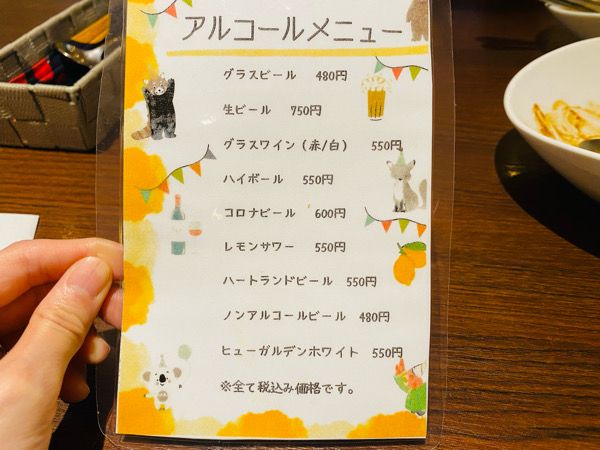 アルコールメニュー
グラスビール 480円
生ビール 750円
グラスワイン（赤/白） 550円
ハイボール 550円
コロナビール 600円
レモンサワー 550円
ハートランドビール 550円
ノンアルコールビール 480円
ヒューガルデンホワイト 550円
※全て税込み価格です。